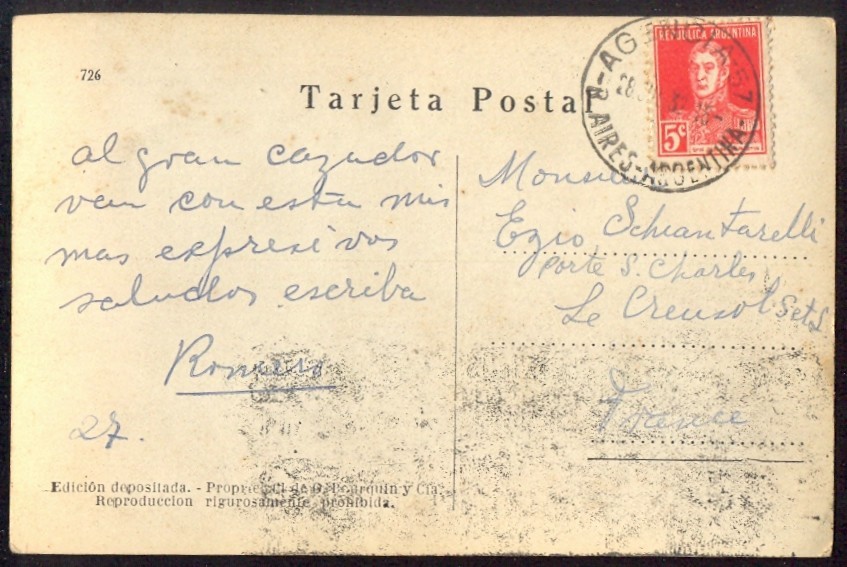 726
Tarjeta Postal
REPUBLICA ARGENTINA
5c
AGENCIA 57
B-AIRES-ARGENTINA
al gran cazador
van con esta mis
mas expresivos
saludos escriba
Romero
27.
Monsieur
Ezio Schiantarelli
Porte S. Charles
Le Creusot S et L
France
Edición depositada. - Propriedad de G. Bourquin y Cía.
Reproduccion rigurosamente prohibida.